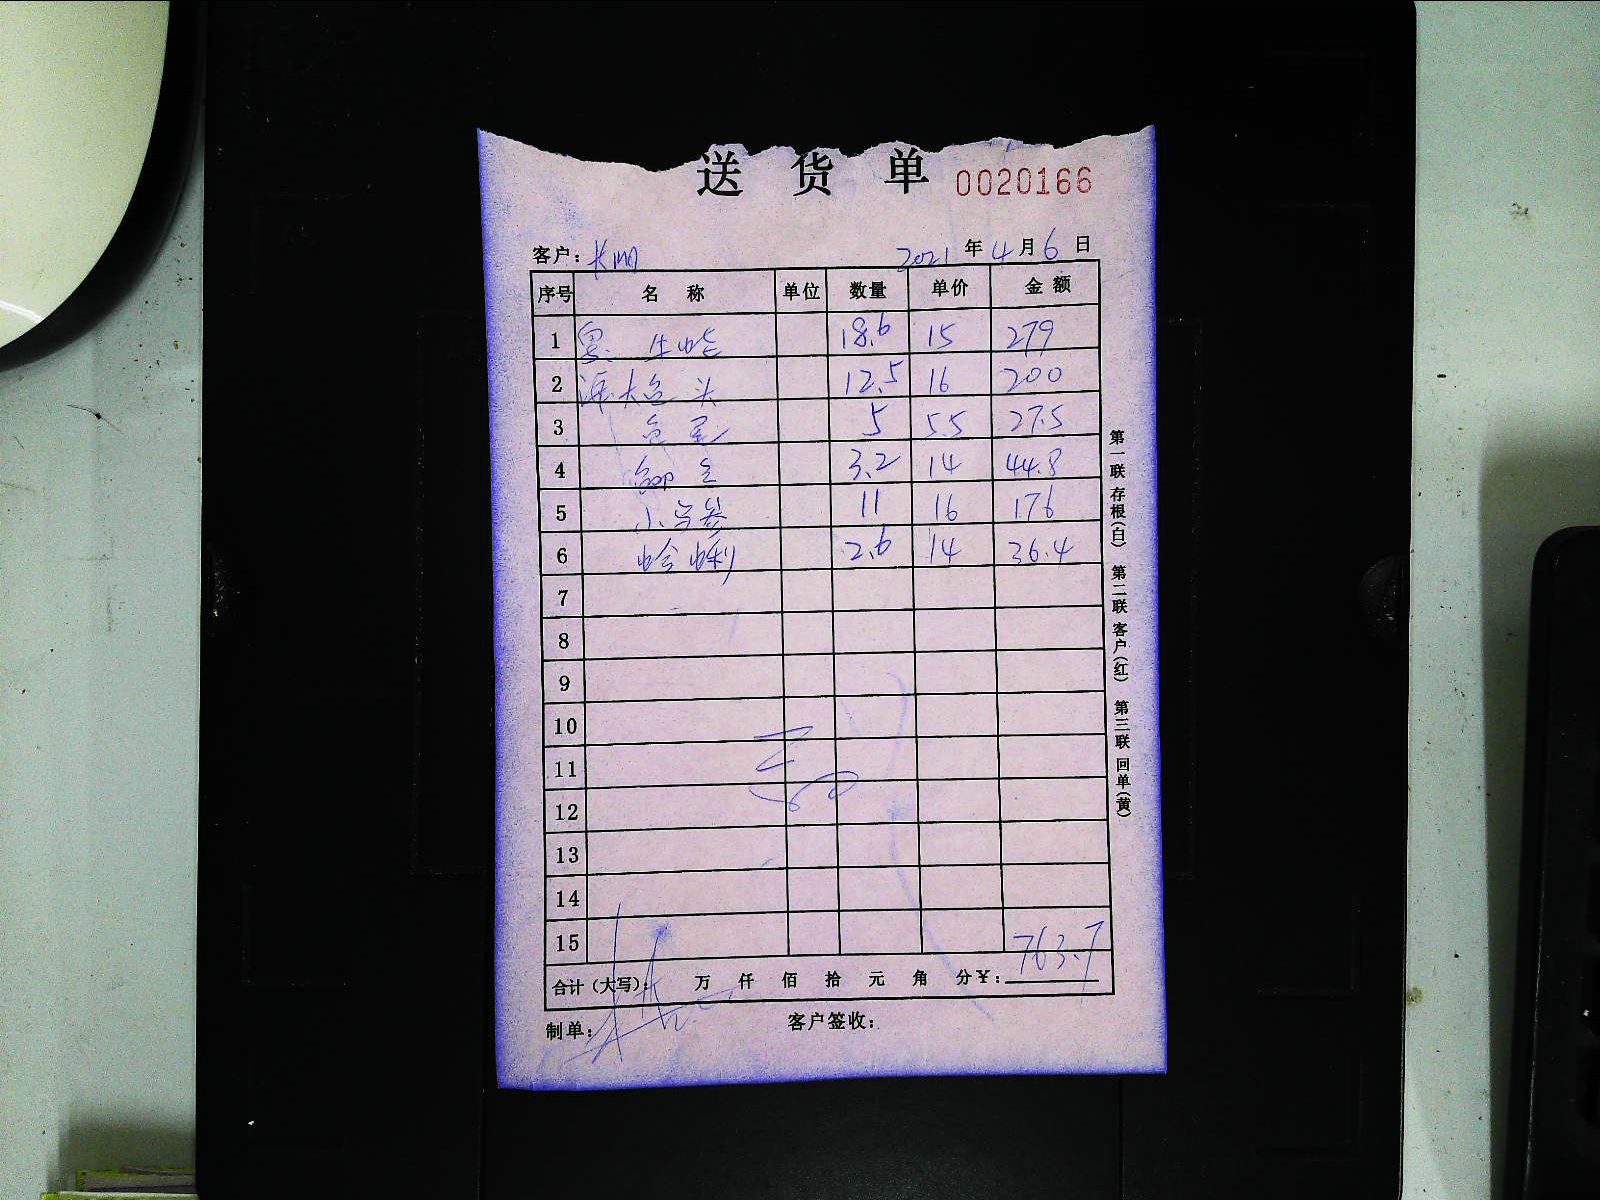 送 货 单 0020166
客户： 2021 年 4 月 6 日
序号 名 称 单位 数量 单价 金 额
1 生蚝 18.6 15 279
2 大鱼头 12.5 16 200
3 鱼尾 5 5.5 27.5
4 3.2 14 44.8
5 小 11 16 176
6 蛤蜊 2.6 14 36.4
7
8
9
10
11
12
13
14
15
合计（大写）： 万 仟 佰 拾 元 角 分￥： 763.7
制单： 客户签收：
第一联 存根（白） 第二联 客户（红） 第三联 回单（黄）